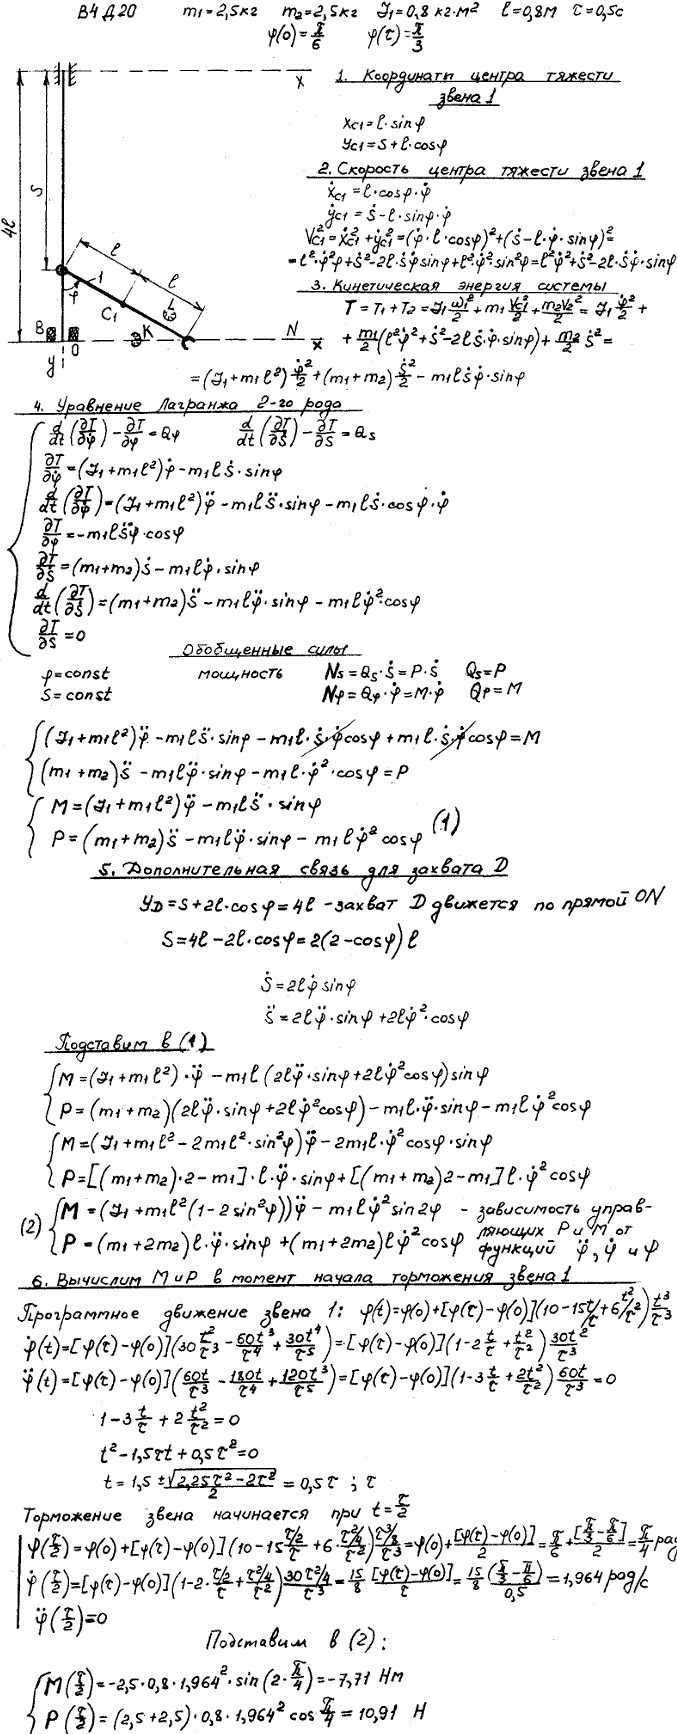 В4 Д20 m1=2,5кг m2=2,5кг J1=0,8 кг·м² l=0,8м τ=0,5с
φ(0)=π/6 φ(τ)=π/3
1. Координаты центра тяжести
звена 1
xc1=l·sinφ
yc1=s+l·cosφ
2. Скорость центра тяжести звена 1
ẋc1=l·cosφ·φ̇
ẏc1=ṡ-l·sinφ·φ̇
Vc1²=ẋc1²+ẏc1²=(φ̇·l·cosφ)²+(ṡ-l·φ̇·sinφ)²=
=l²·φ̇²φ+ṡ²-2l·ṡφ̇sinφ+l²·φ̇²·sin²φ=l²φ̇²+ṡ²-2l·ṡφ̇·sinφ
3. Кинетическая энергия системы
T=T1+T2=J1 ω1²/2+m1 Vc1²/2+m2V2²/2=J1 φ̇²/2+
+m1/2(l²φ̇²+ṡ²-2lṡφ̇·sinφ)+m2/2 ṡ²=
=(J1+m1l²)φ̇²/2+(m1+m2)ṡ²/2-m1lṡφ̇·sinφ
x
4l
s
l
l
φ
1
C1
L
K
B
O
N
x
y
4. Уравнение Лагранжа 2-го рода
d/dt(∂T/∂φ̇)-∂T/∂φ=Qφ d/dt(∂T/∂ṡ)-∂T/∂s=Qs
∂T/∂φ̇=(J1+m1l²)φ̇-m1lṡ·sinφ
d/dt(∂T/∂φ̇)=(J1+m1l²)φ̈-m1ls̈·sinφ-m1lṡ·cosφ·φ̇
∂T/∂φ=-m1lṡφ̇·cosφ
∂T/∂ṡ=(m1+m2)ṡ-m1lφ̇·sinφ
d/dt(∂T/∂ṡ)=(m1+m2)s̈-m1lφ̈·sinφ-m1lφ̇²·cosφ
∂T/∂s=0
Обобщенные силы
φ=const мощность Ns=Qs·ṡ=P·ṡ Qs=P
s=const Nφ=Qφ·φ̇=M·φ̇ Qφ=M
(J1+m1l²)φ̈-m1ls̈·sinφ-m1l·ṡ·φ̇cosφ+m1l·ṡ·φ̇cosφ=M
(m1+m2)s̈-m1lφ̈·sinφ-m1l·φ̇²·cosφ=P
M=(J1+m1l²)φ̈-m1ls̈·sinφ
P=(m1+m2)s̈-m1lφ̈·sinφ-m1lφ̇²cosφ (1)
5. Дополнительная связь для захвата D
yD=s+2l·cosφ=4l -захват D движется по прямой ON
s=4l-2l·cosφ=2(2-cosφ)l
ṡ=2lφ̇sinφ
s̈=2lφ̈·sinφ+2lφ̇²·cosφ
Подставим в (1)
M=(J1+m1l²)·φ̈-m1l(2lφ̈·sinφ+2lφ̇²cosφ)sinφ
P=(m1+m2)(2lφ̈·sinφ+2lφ̇²cosφ)-m1l·φ̈·sinφ-m1lφ̇²cosφ
M=(J1+m1l²-2m1l²·sin²φ)φ̈-2m1l·φ̇²cosφ·sinφ
P=[(m1+m2)·2-m1]·l·φ̈·sinφ+[(m1+m2)2-m1]l·φ̇²cosφ
(2) M=(J1+m1l²(1-2sin²φ))φ̈-m1lφ̇²sin2φ - зависимость управ-
P=(m1+2m2)l·φ̈·sinφ+(m1+2m2)lφ̇²cosφ ляющих P и M от
функций φ̈, φ̇ и φ
6. Вычислим M и P в момент начала торможения звена 1
Программное движение звена 1: φ(t)=φ(0)+[φ(τ)-φ(0)](10-15t/τ+6t²/τ²)t³/τ³
φ̇(t)=[φ(τ)-φ(0)](30t²/τ³-60t³/τ⁴+30t⁴/τ⁵)=[φ(τ)-φ(0)](1-2t/τ+t²/τ²)30t²/τ³
φ̈(t)=[φ(τ)-φ(0)](60t/τ³-180t²/τ⁴+120t³/τ⁵)=[φ(τ)-φ(0)](1-3t/τ+2t²/τ²)60t/τ³=0
1-3t/τ+2t²/τ²=0
t²-1,5τt+0,5τ²=0
t=1,5±√(2,25τ²-2τ²)/2=0,5τ ; τ
Торможение звена начинается при t=τ/2
φ(τ/2)=φ(0)+[φ(τ)-φ(0)](10-15(τ/2)/τ+6·(τ²/4)/τ²)(τ³/8)/τ³=φ(0)+[φ(τ)-φ(0)]/2=π/6+[π/3-π/6]/2=π/4 рад
φ̇(τ/2)=[φ(τ)-φ(0)](1-2·(τ/2)/τ+(τ²/4)/τ²)(30τ²/4)/τ³=15/8 [φ(τ)-φ(0)]/τ=15/8 (π/3-π/6)/0,5=1,964 рад/с
φ̈(τ/2)=0
Подставим в (2):
M(τ/2)=-2,5·0,8·1,964²·sin(2·π/4)=-7,71 Нм
P(τ/2)=(2,5+2,5)·0,8·1,964²cos π/4=10,91 Н